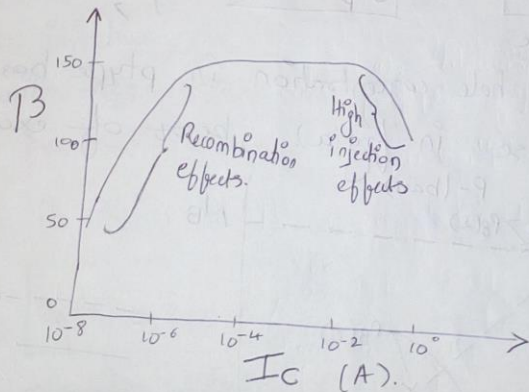 150
β
High
100
Recombination
effects.
injection
effects
50
0
10⁻⁸
10⁻⁶
10⁻⁴
10⁻²
10⁰
Ic (A).